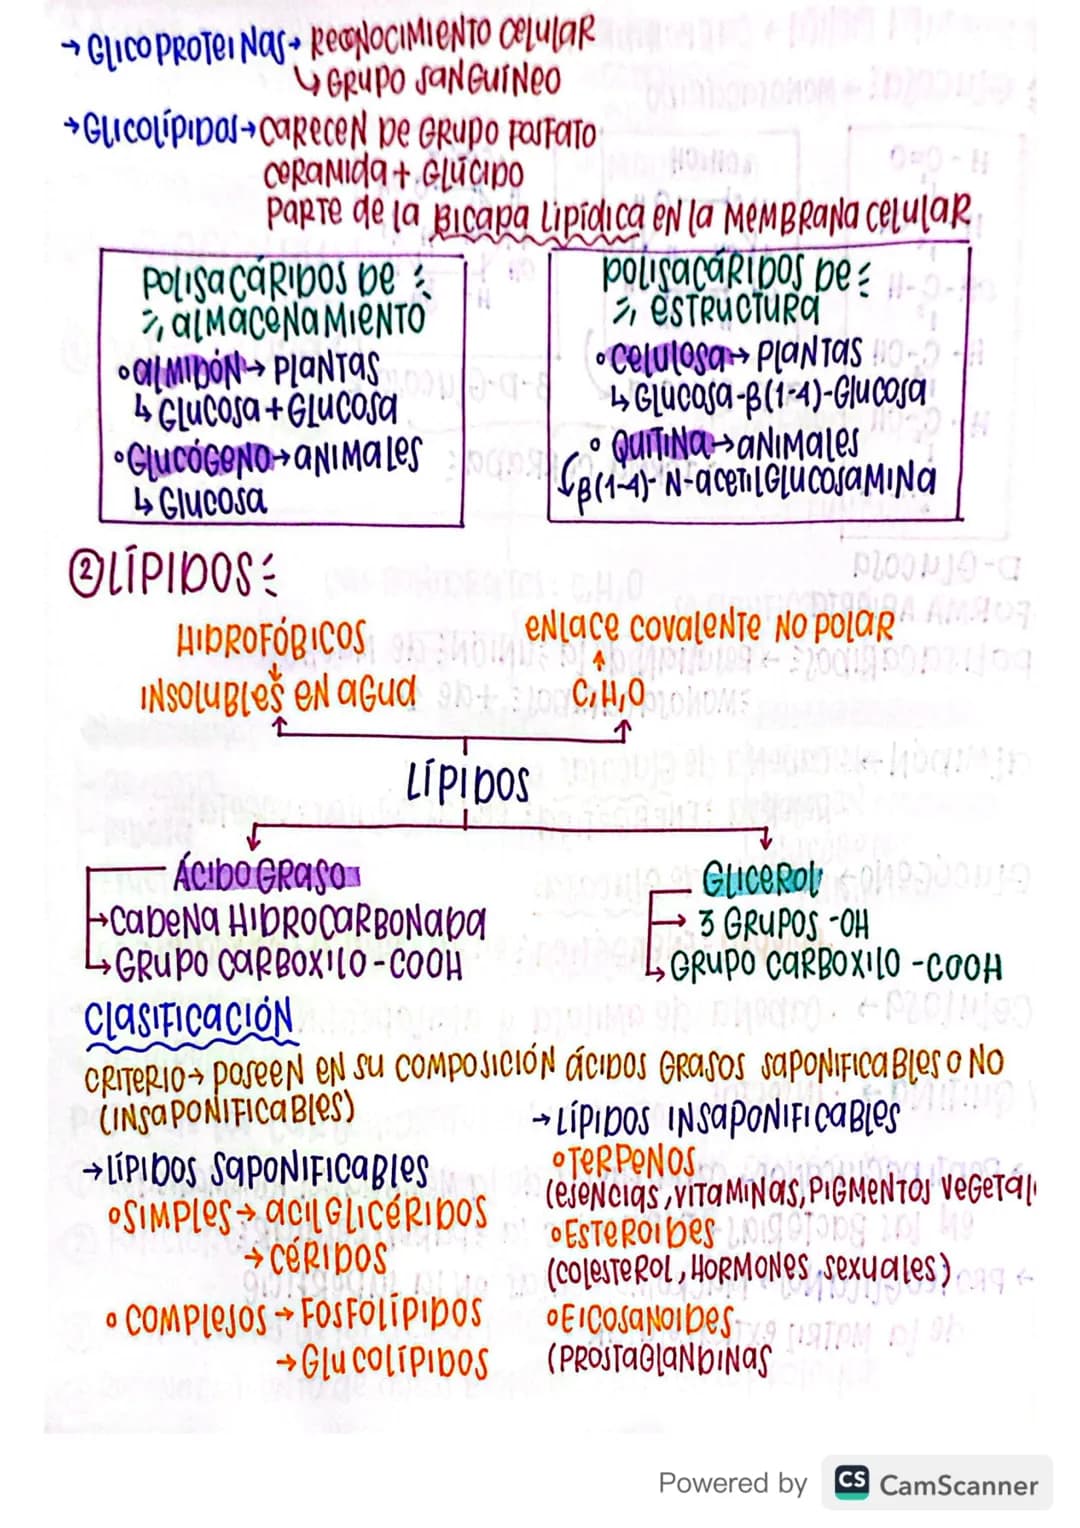 → GLICOPROTEINAS → RECONOCIMIENTO CELULAR
↳ GRUPO SANGUÍNEO
→ GLICOLÍPIDOS → CARECEN DE GRUPO FOSFATO
CERAMIDA + GLÚCIDO
PARTE DE LA BICAPA LIPÍDICA EN LA MEMBRANA CELULAR
POLISACÁRIDOS DE
ALMACENAMIENTO
• ALMIDÓN → PLANTAS
↳ GLUCOSA + GLUCOSA
• GLUCÓGENO → ANIMALES
↳ GLUCOSA
POLISACÁRIDOS DE
ESTRUCTURA
• CELULOSA → PLANTAS
↳ GLUCOSA-β(1-4)-GLUCOSA
• QUITINA → ANIMALES
↳ β(1-4)-N-ACETILGLUCOSAMINA
② LÍPIDOS
HIDROFÓBICOS
↓
INSOLUBLES EN AGUA
ENLACE COVALENTE NO POLAR
↑
C,H,O
LÍPIDOS
ÁCIDO GRASO
→ CADENA HIDROCARBONADA
↳ GRUPO CARBOXILO -COOH
GLICEROL
→ 3 GRUPOS -OH
↳ GRUPO CARBOXILO -COOH
CLASIFICACIÓN
CRITERIO → POSEEN EN SU COMPOSICIÓN ÁCIDOS GRASOS SAPONIFICABLES O NO
(INSAPONIFICABLES)
→ LÍPIDOS SAPONIFICABLES
• SIMPLES → ACILGLICÉRIDOS
→ CÉRIDOS
• COMPLEJOS → FOSFOLÍPIDOS
→ GLUCOLÍPIDOS
→ LÍPIDOS INSAPONIFICABLES
• TERPENOS
(ESENCIAS, VITAMINAS, PIGMENTOS VEGETAL
• ESTEROIDES
(COLESTEROL, HORMONES SEXUALES)
• EICOSANOIDES
(PROSTAGLANDINAS
Powered by CS CamScanner